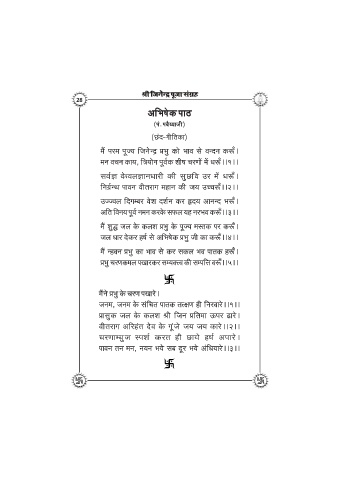 श्री जिनेन्द्र पूजा संग्रह
28
अभिषेक पाठ
(छंद-गीतिका)
मैं परम पूज्य जिनेन्द्र प्रभु को भाव से वन्दन करूँ।
मन वचन काय, त्रियोग पूर्वक शीष चरणों में धरूँ।।१।।
सर्वज्ञ केवलज्ञानधारी की सुछवि उर में धरूँ।
निर्ग्रन्थ पावन वीतराग महान की जय उच्चरूँ।।२।।
उज्ज्वल दिगम्बर वेश दर्शन कर हृदय आनन्द भरूँ।
अति विनय पूर्व नमन करके सफल यह नरभव करूँ।।३।।
मैं शुद्ध जल के कलश प्रभु के पूज्य मस्तक पर करूँ।
जल धार देकर हर्ष से अभिषेक प्रभु जी का करूँ।।४।।
मैं न्हवन प्रभु का भाव से कर सकल भव पातक हरूँ।
प्रभु चरणकमल पखारकर सम्यक्त्व की सम्पत्ति वरूँ।।५।।
卐
मैंने प्रभु के चरण पखारे।
जनम, जनम के संचित पातक तत्क्षण ही निरवारे।।१।।
प्रासुक जल के कलश श्री जिन प्रतिमा ऊपर ढारे।
वीतराग अरिहंत देव के गूंजे जय जय कारे।।२।।
चरणाम्बुज स्पर्श करत ही छाये हर्ष अपारे।
पावन तन मन, नयन भये सब दूर भये अंधियारे।।३।।
卐